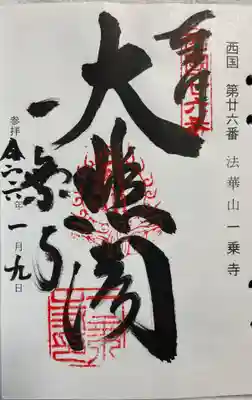 西国 第廿六番 法華山 一乗寺
奉拝
大悲閣
一乗寺
参拝 令和六年 一月九日